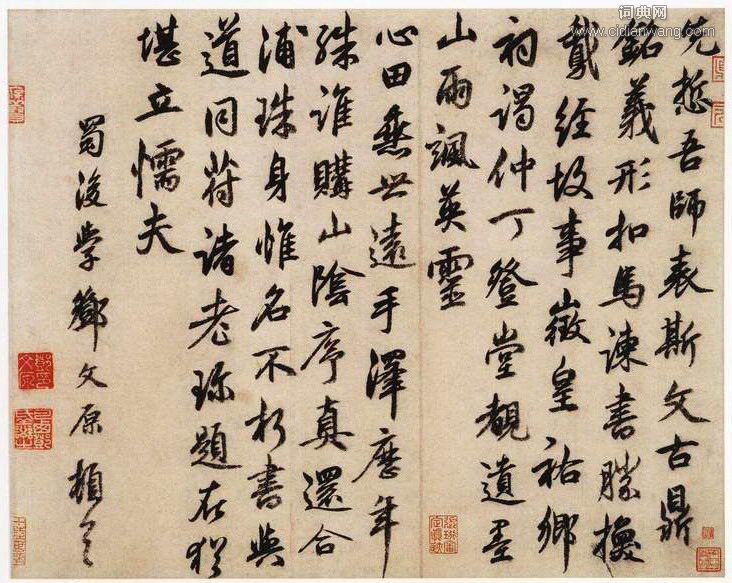 词典网
www.cidianwang.com
先悊吾師表斯文古鼎
銘義形扣馬諫書勝換
鵞經故事徵皇祐鄉
祠謁仲丁登堂覩遺墨
山雨颯英靈
心田垂世遠手澤歷年
殊誰購山陰序真還合
浦珠身惟名不朽書與
道同符諸老珍題在猶
堪立懦夫
蜀後學鄧文原頓首